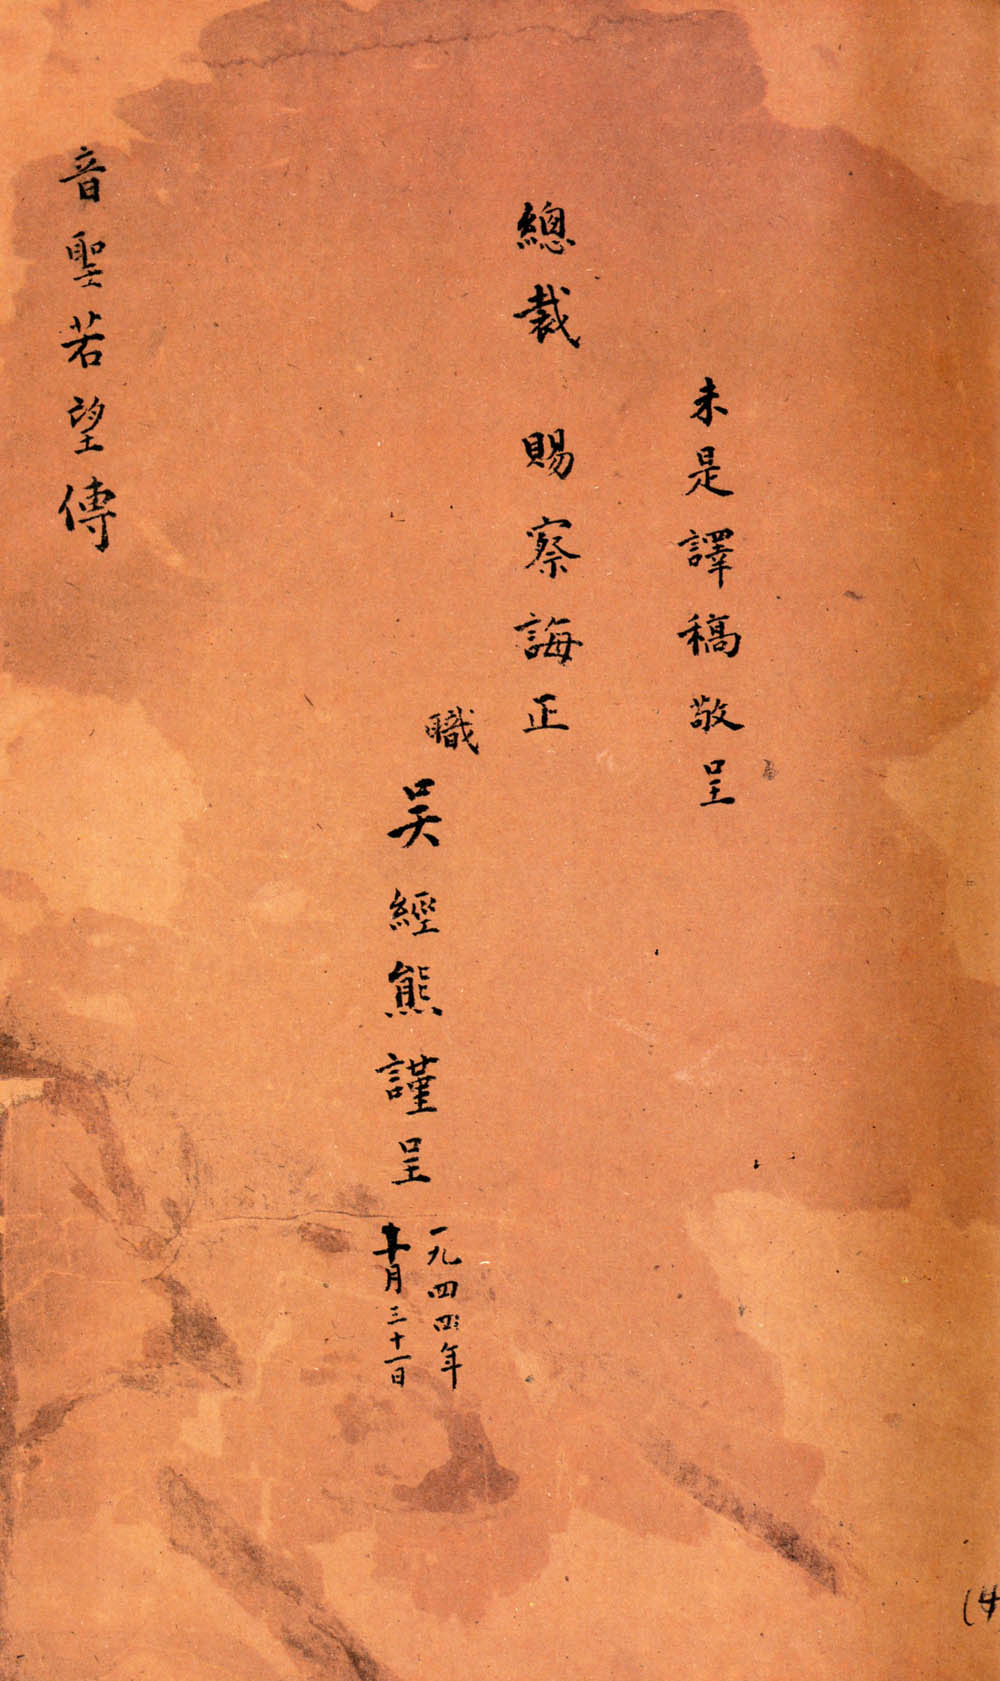 未是譯稿敬呈
總裁 賜察誨正
職 吴經熊謹呈
一九四四年
十月三十一日
音聖若望傳
(4